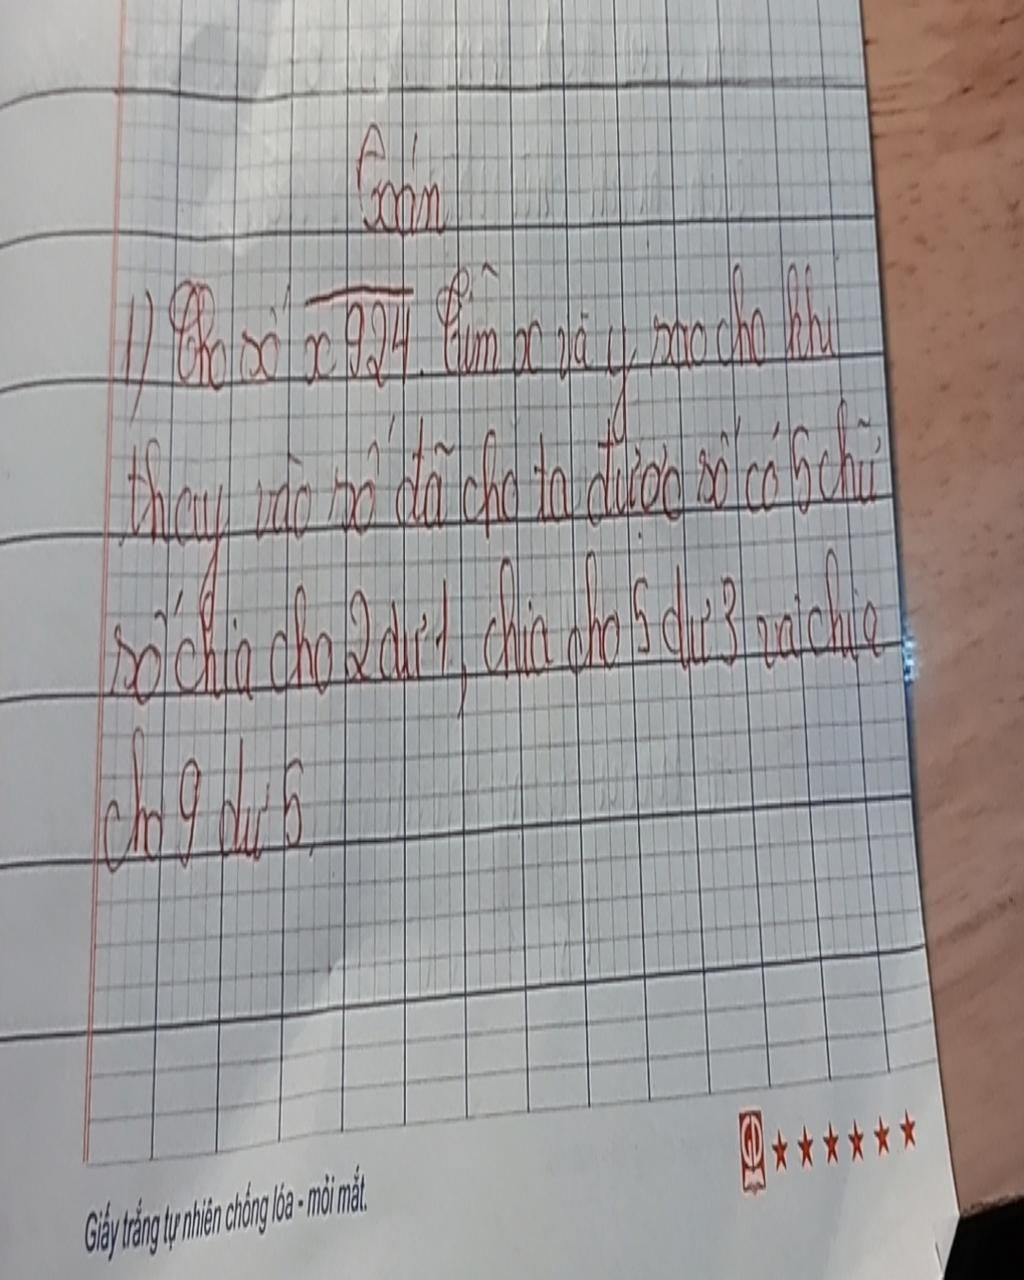 Toán
1) Cho số x924. Tìm x và y sao cho khi
thay vào số đã cho ta được số có 5 chữ
số chia cho 2 dư 1, chia cho 5 dư 3 và chia
cho 9 dư 5.
Giấy trắng tự nhiên chống lóa - mỏi mắt.